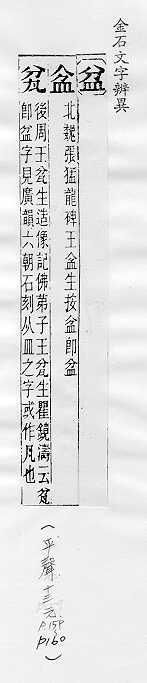 金石文字辨異
盆
盆
北魏張猛龍碑王盆生按盆即盆
瓫
後周王瓫生造像記佛弟子王瓫生瞿鏡濤云瓫
即盆字見廣韻六朝石刻从皿之字或作凡也
(平聲十三元 p.159
p160)